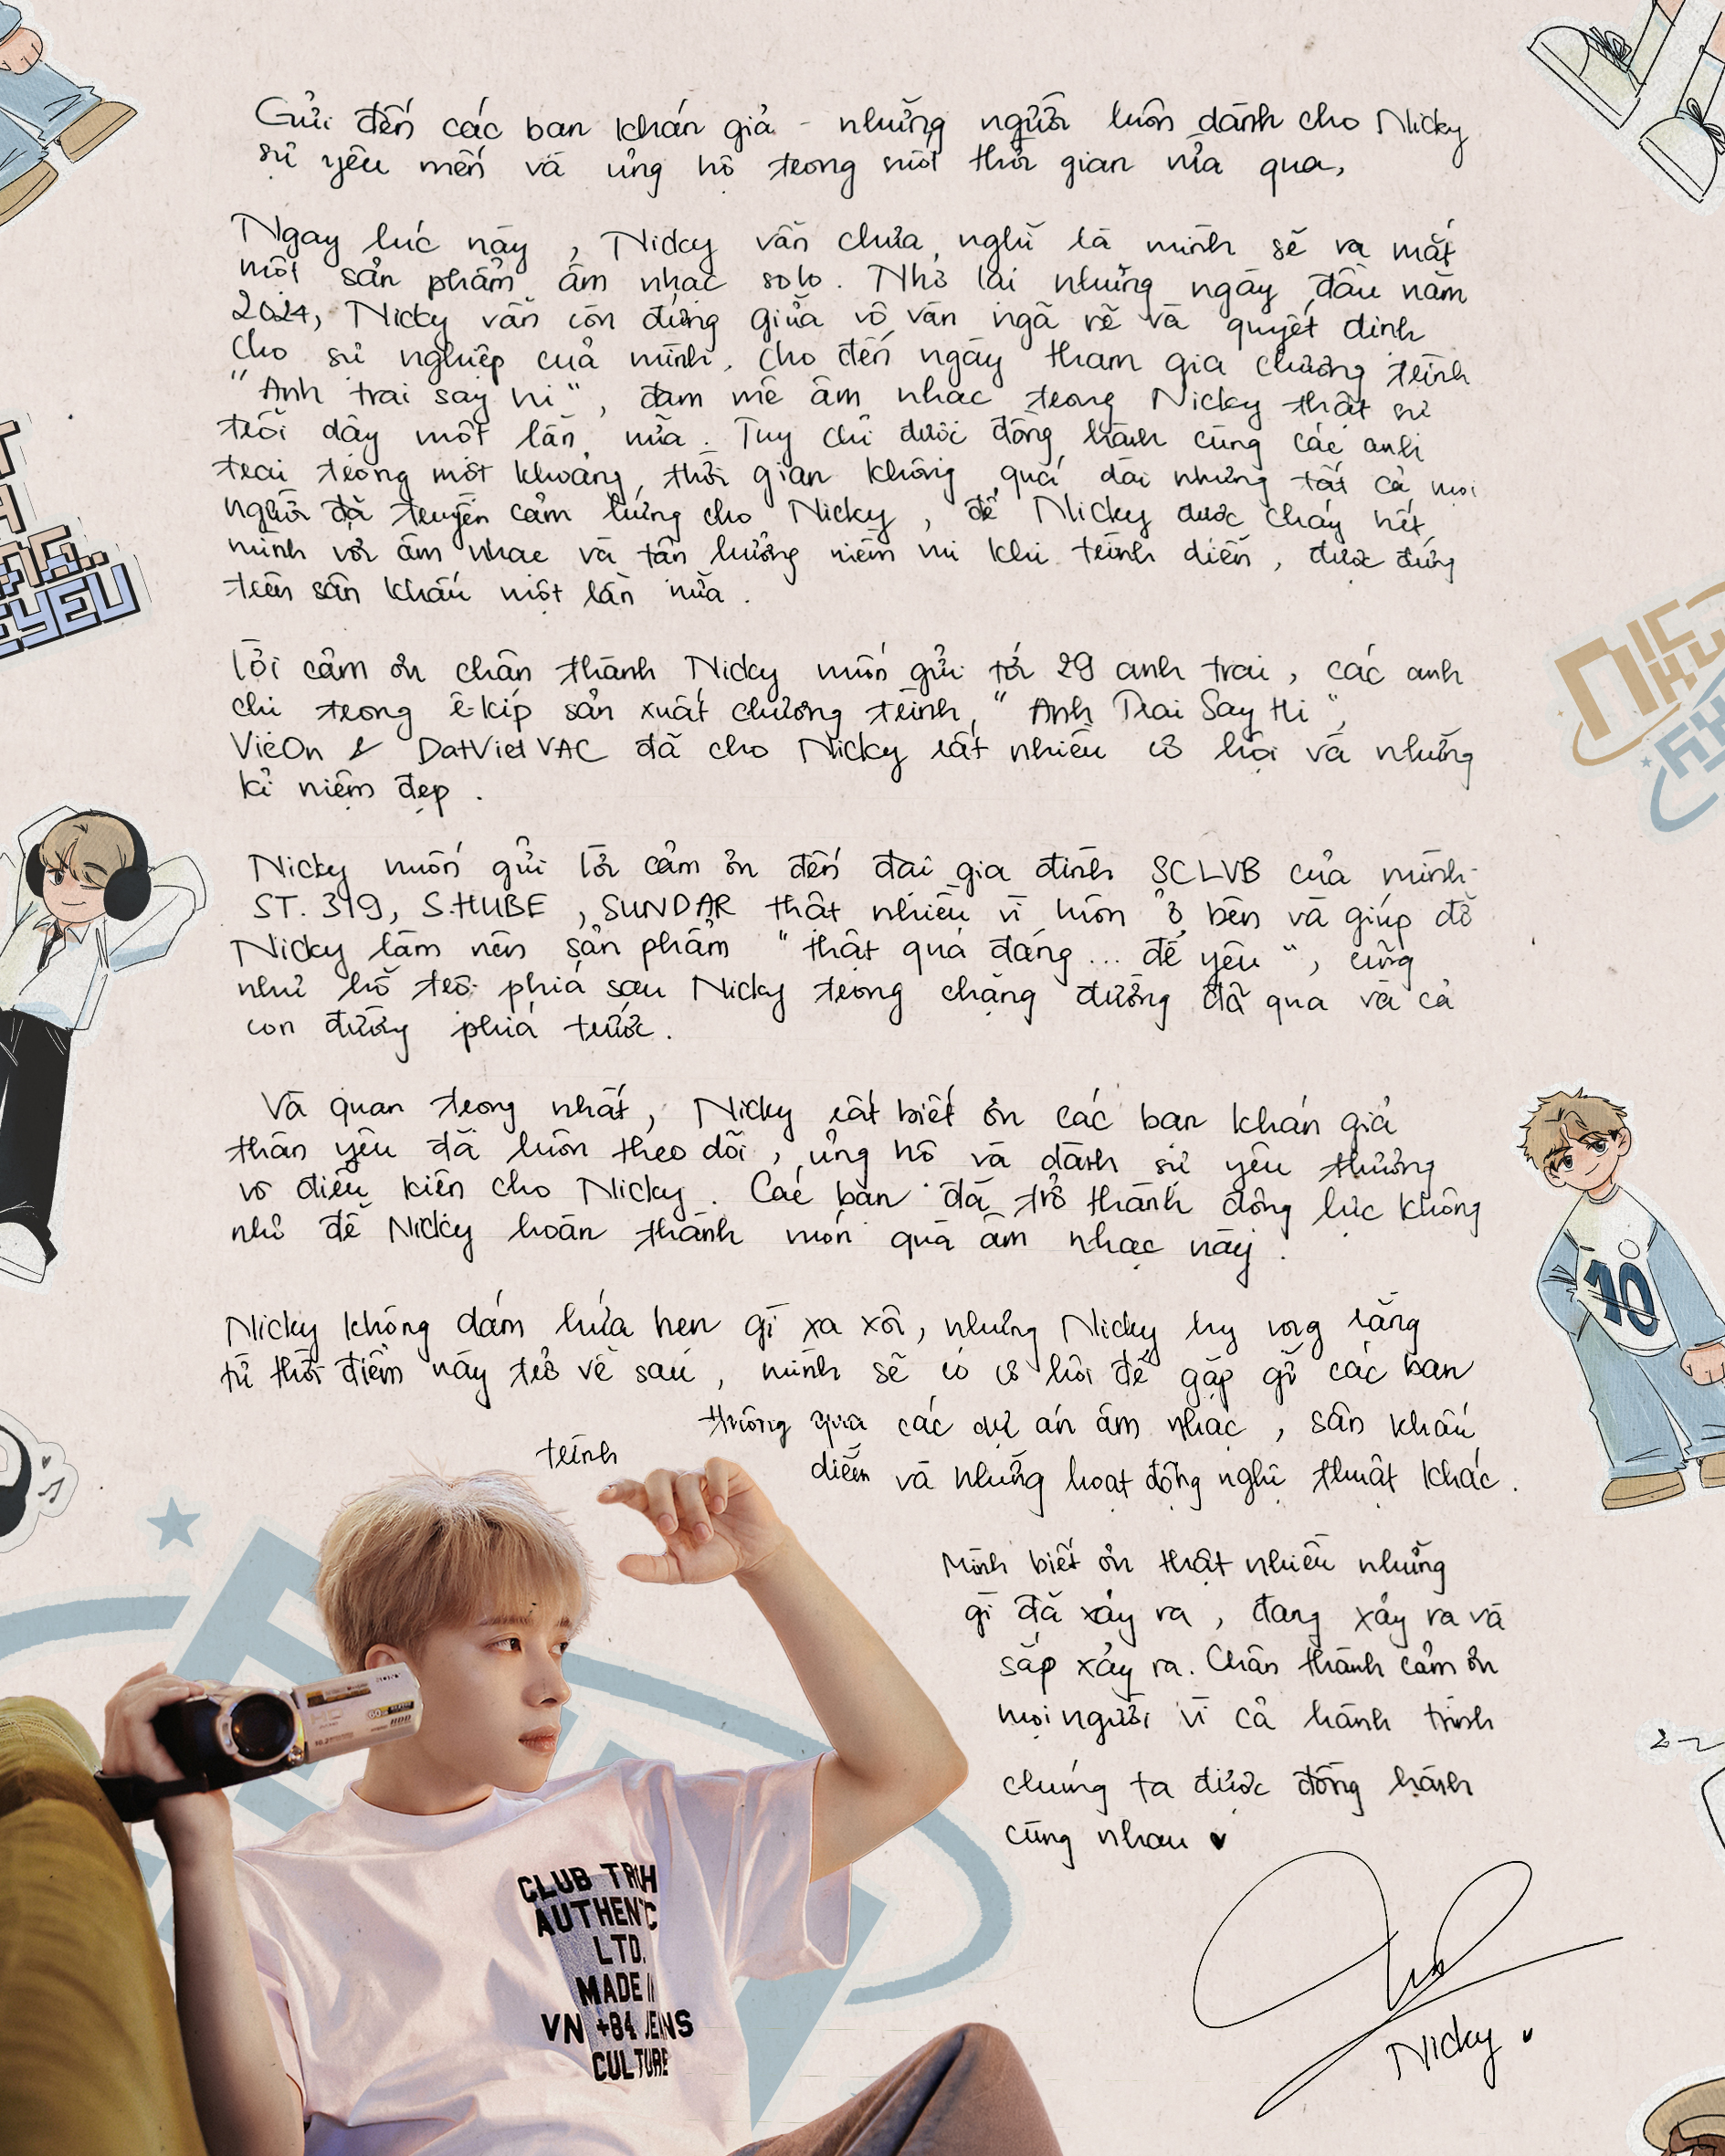 Gửi đến các bạn khán giả - những người luôn dành cho Nicky
sự yêu mến và ủng hộ trong suốt thời gian vừa qua,
Ngay lúc này, Nicky vẫn chưa nghĩ là mình sẽ ra mắt
một sản phẩm âm nhạc solo. Nhớ lại những ngày đầu năm
2024, Nicky vẫn còn đứng giữa vô vàn ngã rẽ và quyết định
cho sự nghiệp của mình. Cho đến ngày tham gia chương trình
"Anh trai say hi", đam mê âm nhạc trong Nicky thật sự
trỗi dậy một lần nữa. Tuy chỉ được đồng hành cùng các anh
trai trong một khoảng thời gian không quá dài nhưng tất cả mọi
người đã truyền cảm hứng cho Nicky, để Nicky được cháy hết
mình với âm nhạc và tận hưởng niềm vui khi trình diễn, được đứng
trên sân khấu một lần nữa.
Lời cảm ơn chân thành Nicky muốn gửi tới 29 anh trai, các anh
chị trong ê-kíp sản xuất chương trình "Anh Trai Say Hi",
VieOn & DatVietVAC đã cho Nicky rất nhiều cơ hội và những
kỉ niệm đẹp.
Nicky muốn gửi lời cảm ơn đến đại gia đình SCLVB của mình-
ST.319, S.HUBE, SUNDAR thật nhiều vì luôn ở bên và giúp đỡ
Nicky làm nên sản phẩm "thật quá đáng... để yêu", cũng
như hỗ trợ phía sau Nicky trong chặng đường đã qua và cả
con đường phía trước.
Và quan trọng nhất, Nicky rất biết ơn các bạn khán giả
thân yêu đã luôn theo dõi, ủng hộ và dành sự yêu thương
vô điều kiện cho Nicky. Các bạn đã trở thành động lực không
nhỏ để Nicky hoàn thành món quà âm nhạc này.
Nicky không dám hứa hẹn gì xa xôi, nhưng Nicky hy vọng rằng
từ thời điểm này trở về sau, mình sẽ có cơ hội để gặp gỡ các bạn
thông qua các dự án âm nhạc, sân khấu
trình diễn và những hoạt động nghệ thuật khác.
Mình biết ơn thật nhiều những
gì đã xảy ra, đang xảy ra và
sắp xảy ra. Chân thành cảm ơn
mọi người vì cả hành trình
chúng ta được đồng hành
cùng nhau
Nicky
CLUB TRƯH
AUTHENTC
LTD.
MADE I
VN +84 JEANS
CULTURE
10